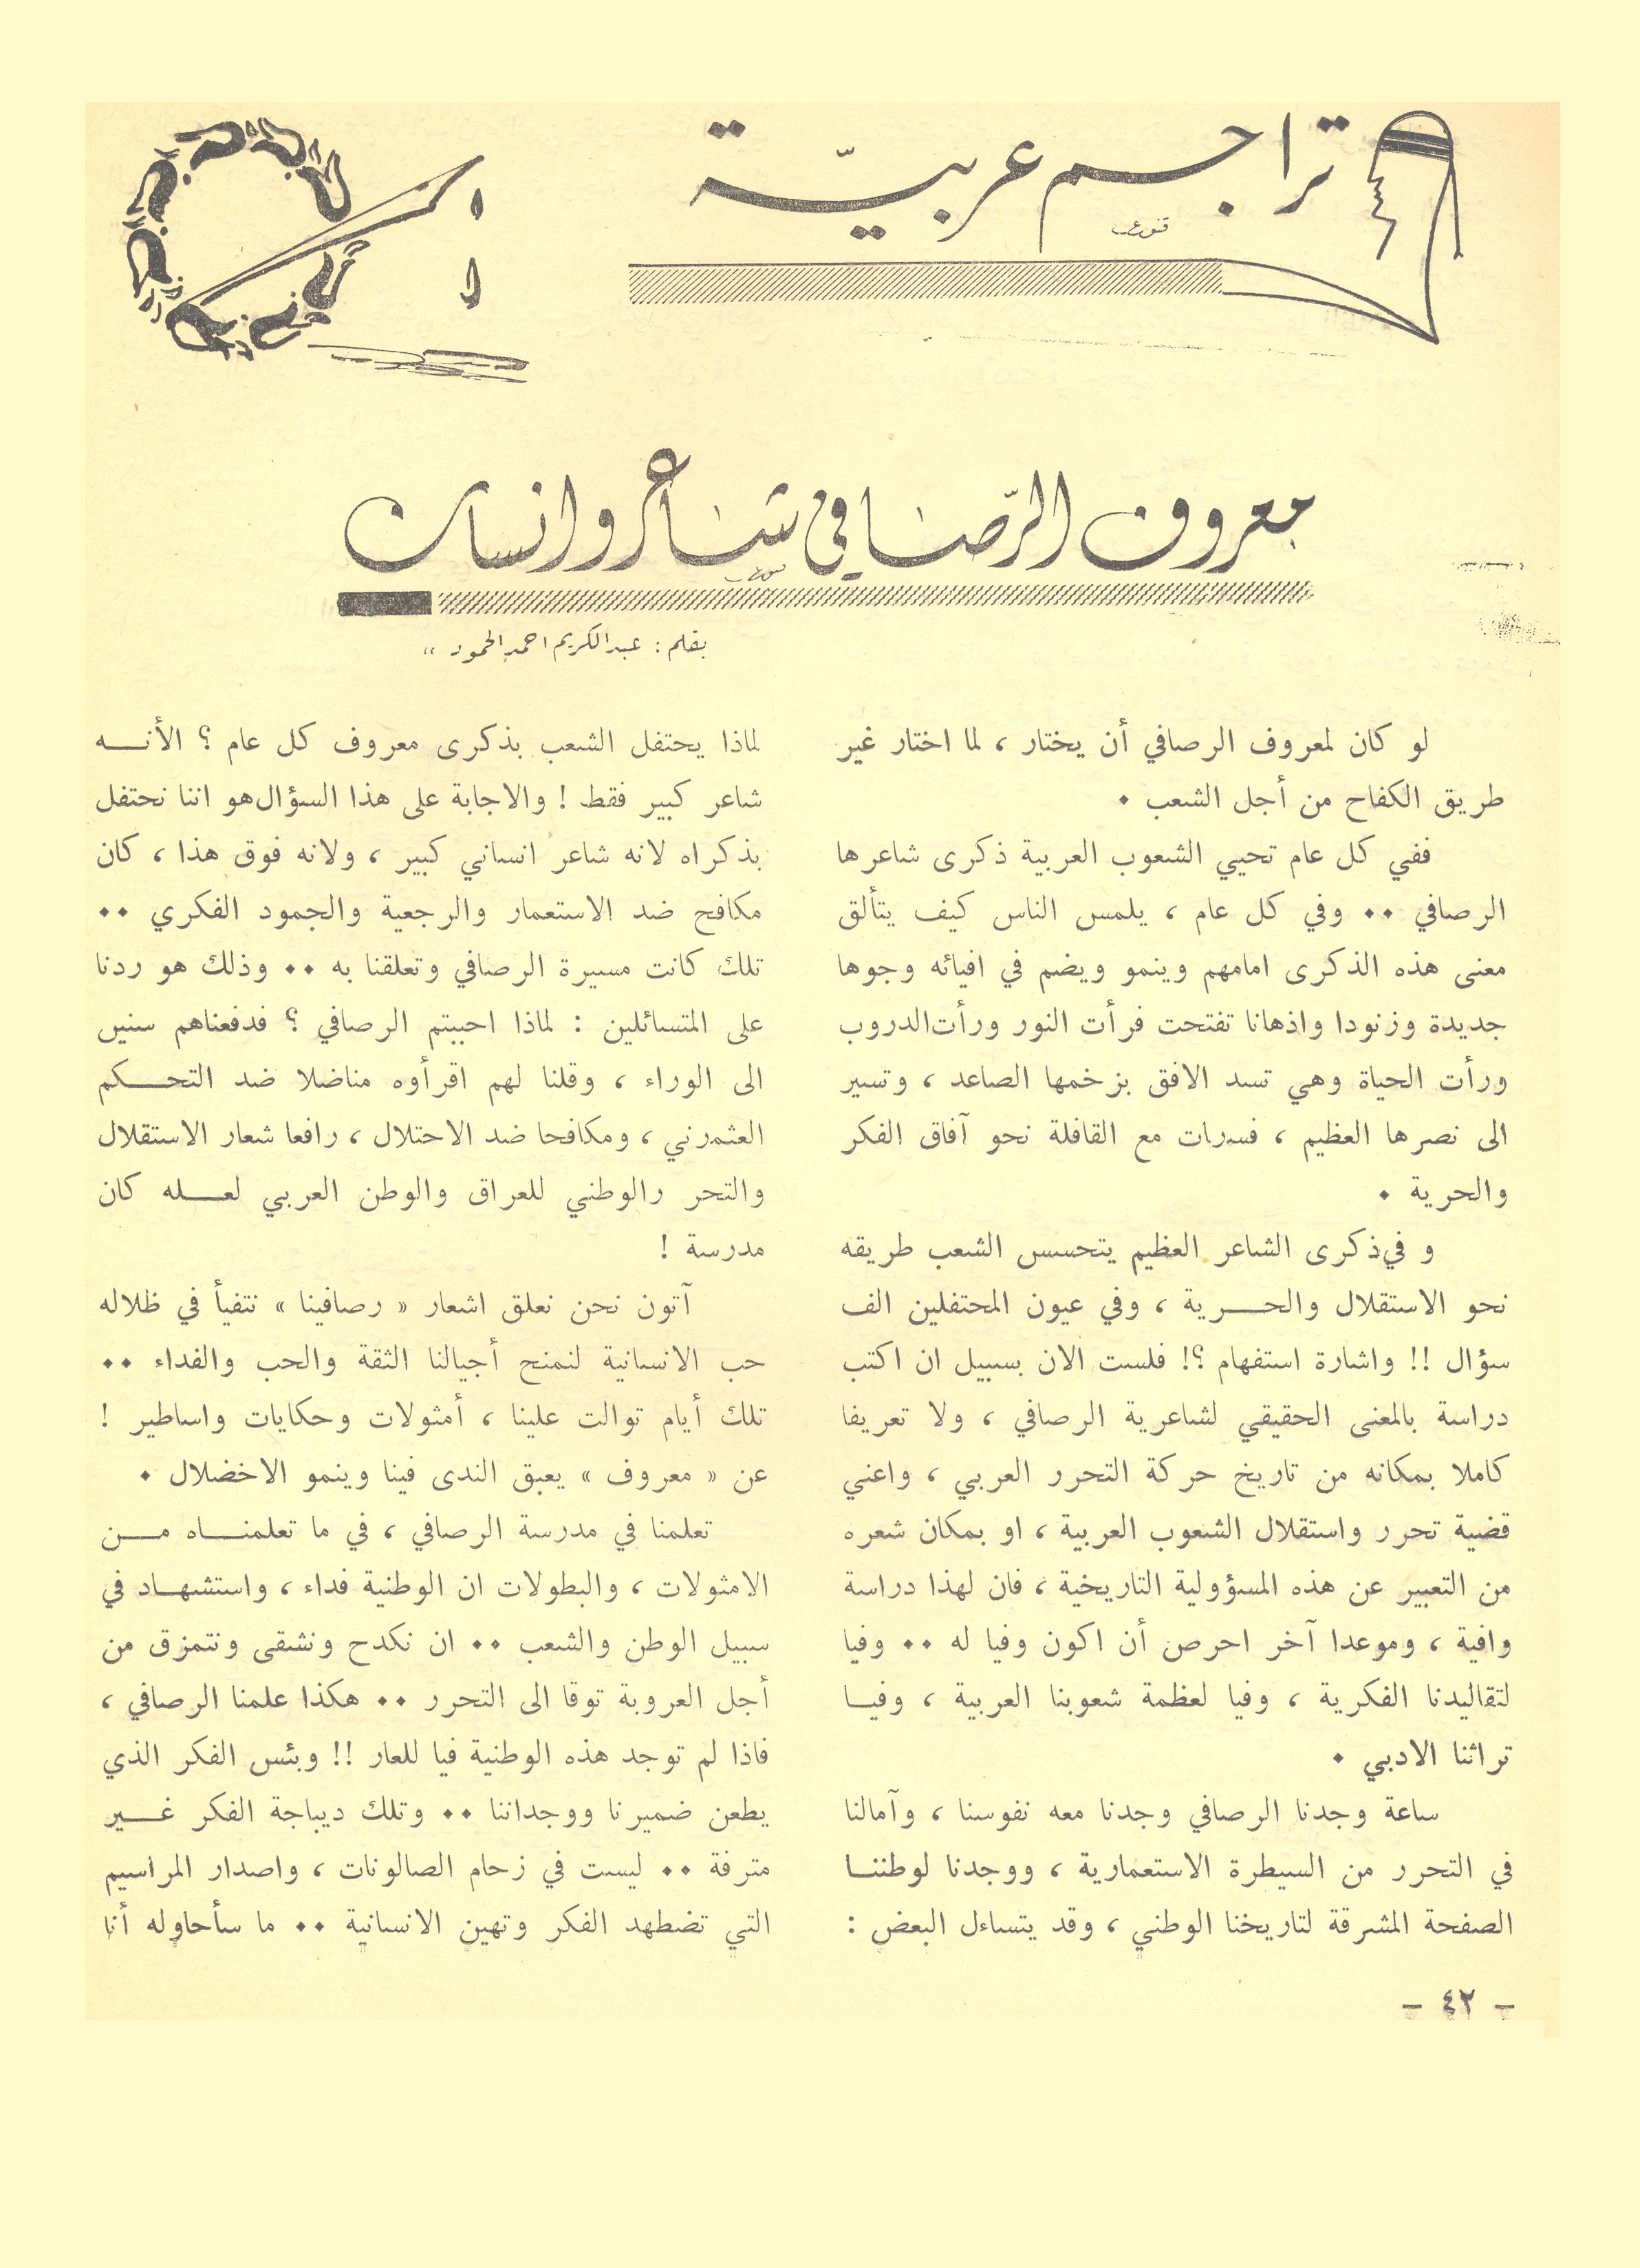 تراجم عربيّة
معروف الرّصافي شاعر وانسان
بقلم : عبدالكريم احمد الحمود
لو كان لمعروف الرصافي أن يختار ، لما اختار غير
طريق الكفاح من أجل الشعب •
ففي كل عام تحيي الشعوب العربية ذكرى شاعرها
الرصافي •• وفي كل عام ، يلمس الناس كيف يتألق
معنى هذه الذكرى امامهم وينمو ويضم في افيائه وجوها
جديدة وزنودا واذهانا تفتحت فرأت النور ورأت الدروب
ورأت الحياة وهي تسد الافق بزخمها الصاعد ، وتسير
الى نصرها العظيم ، فسرات مع القافلة نحو آفاق الفكر
والحرية •
و في ذكرى الشاعر العظيم يتحسس الشعب طريقه
نحو الاستقلال والحـــرية ، وفي عيون المحتفلين الف
سؤال !! واشارة استفهام ؟! فلست الان بسبيل ان اكتب
دراسة بالمعنى الحقيقي لشاعرية الرصافي ، ولا تعريفا
كاملا بمكانه من تاريخ حركة التحرر العربي ، واعني
قضية تحرر واستقلال الشعوب العربية ، او بمكان شعره
من التعبير عن هذه المسؤولية التاريخية ، فان لهذا دراسة
وافية ، وموعدا آخر احرص أن اكون وفيا له •• وفيا
لتقاليدنا الفكرية ، وفيا لعظمة شعوبنا العربية ، وفيــا
تراثنا الادبي •
ساعة وجدنا الرصافي وجدنا معه نفوسنا ، وآمالنا
في التحرر من السيطرة الاستعمارية ، ووجدنا لوطننــا
الصفحة المشرقة لتاريخنا الوطني ، وقد يتساءل البعض :
لماذا يحتفل الشعب بذكرى معروف كل عام ؟ الأنـــه
شاعر كبير فقط ! والاجابة على هذا السؤال هو اننا نحتفل
بذكراه لانه شاعر انساني كبير ، ولانه فوق هذا ، كان
مكافح ضد الاستعمار والرجعية والجمود الفكري ••
تلك كانت مسيرة الرصافي وتعلقنا به •• وذلك هو ردنا
على المتسائلين : لماذا احببتم الرصافي ؟ فدفعناهم سنين
الى الوراء ، وقلنا لهم اقرأوه مناضلا ضد التحـــكم
العثمرني ، ومكافحا ضد الاحتلال ، رافعا شعار الاستقلال
والتحر رالوطني للعراق والوطن العربي لعـــله كان
مدرسة !
آتون نحن نعلق اشعار « رصافينا » نتفيأ في ظلاله
حب الانسانية لنمنح أجيالنا الثقة والحب والفداء ••
تلك أيام توالت علينا ، أمثولات وحكايات واساطير !
عن « معروف » يعبق الندى فينا وينمو الاخضلال •
تعلمنا في مدرسة الرصافي ، في ما تعلمنــاه مـــن
الامثولات ، والبطولات ان الوطنية فداء ، واستشهــاد في
سبيل الوطن والشعب •• ان نكدح ونشقى ونتمزق من
أجل العروبة توقا الى التحرر •• هكذا علمنا الرصافي ،
فاذا لم توجد هذه الوطنية فيا للعار !! وبئس الفكر الذي
يطعن ضميرنا ووجداننا •• وتلك ديباجة الفكر غـــير
مترفة •• ليست في زحام الصالونات ، واصدار المراسيم
التي تضطهد الفكر وتهين الانسانية •• ما سأحاوله أنا
– ٤٢ –